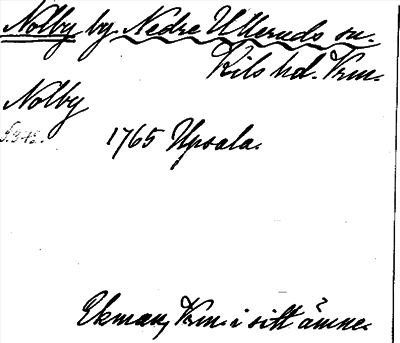 Nolby by Nedre Ulleruds sn.
Kils hd. Vrm.
Nolby
1765 Upsala.
Ekman, Vrm. i sitt ämne.